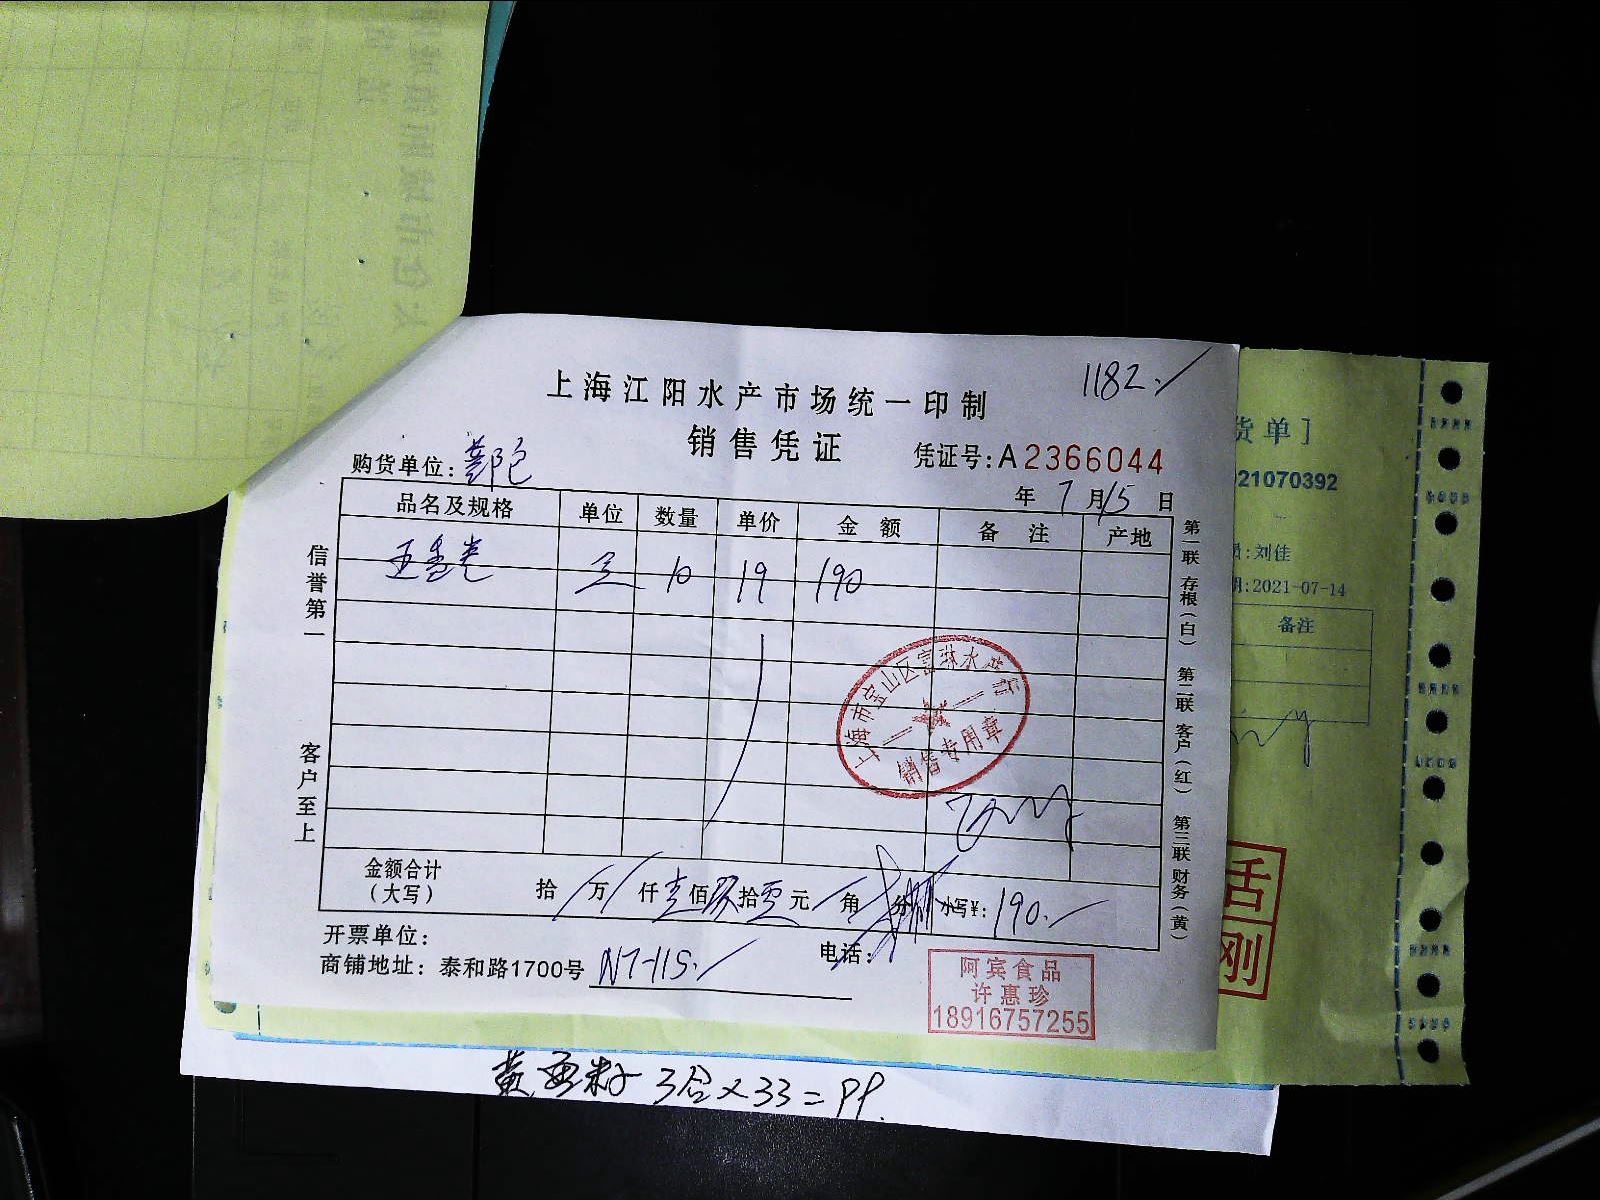 1182.
上海江阳水产市场统一印制
销售凭证
凭证号:A2366044
购货单位:
年 7 月 15 日
品名及规格 单位 数量 单价 金额 备注 产地
10 19 190
信誉第一
客户至上
第一联 存根(白) 第二联 客户(红) 第三联 财务(黄)
上海市宝山区富琳水产行
销售专用章
金额合计
(大写)
拾 万 仟 壹 佰 玖 拾 零 元 角 分 小写¥: 190.
开票单位:
电话:
商铺地址: 泰和路1700号 N7-115.
阿宾食品
许惠珍
18916757255
货单]
021070392
员:刘佳
期:2021-07-14
备注
活
刚
3合×33=99.